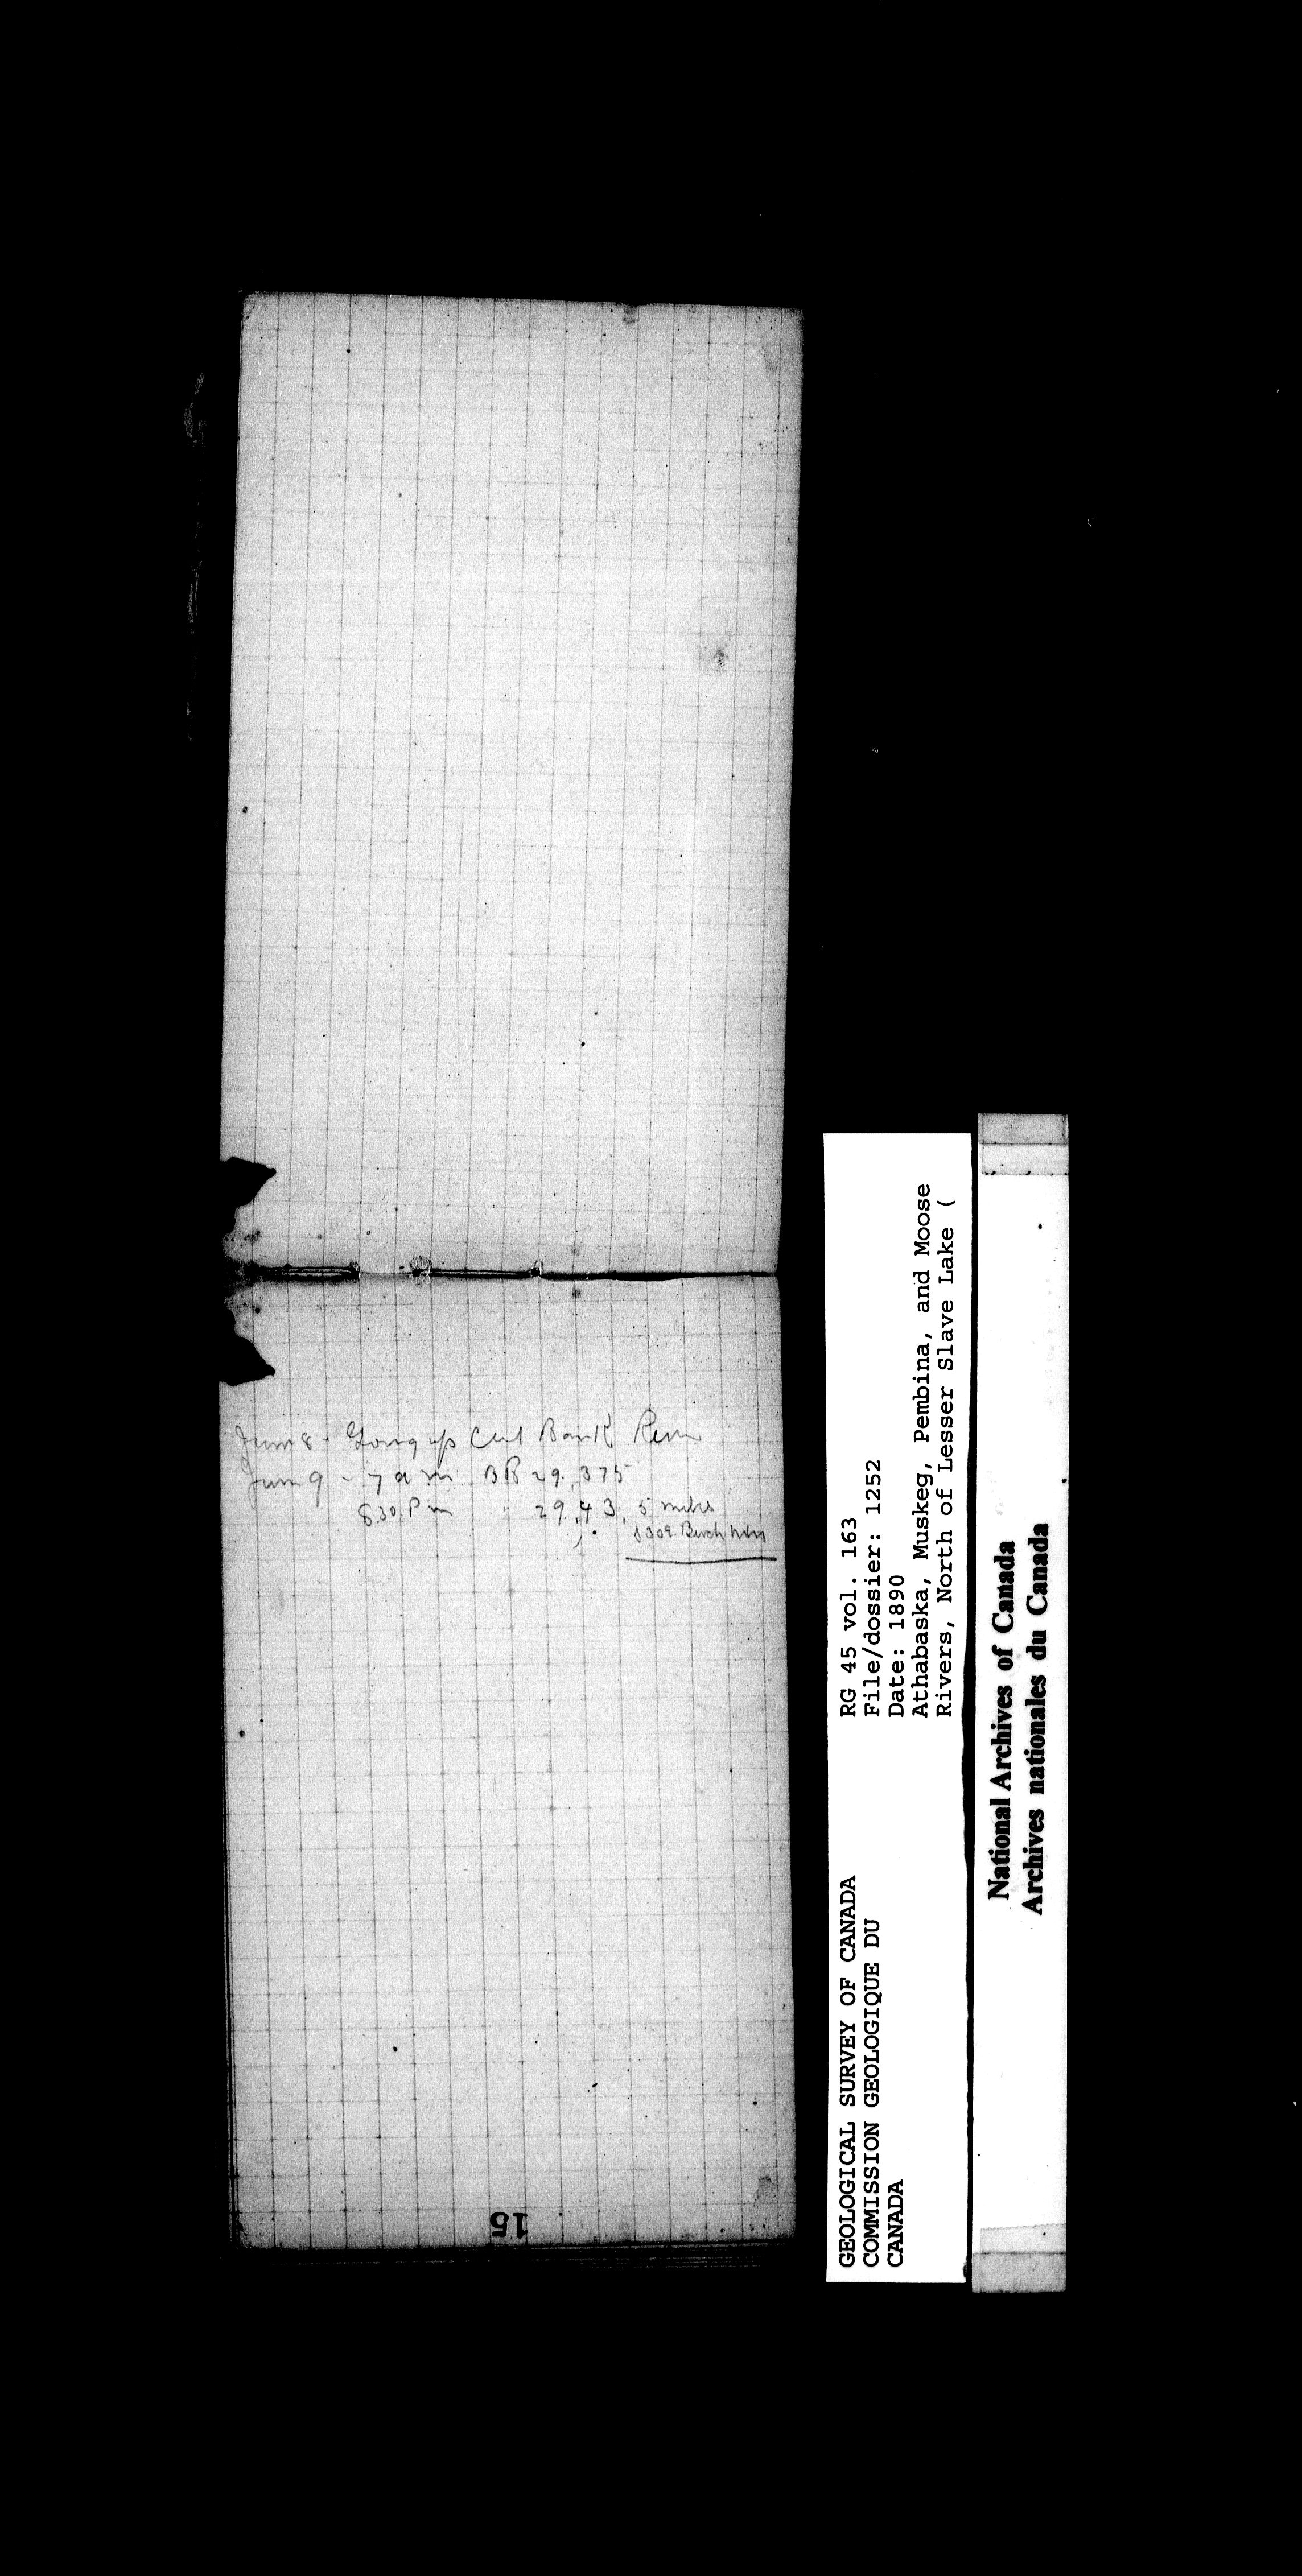 June 8 - Going up Cut Bank River
June 9 - 7 a m BR 29.375
8.30 P m " 29.43. 5 miles
Birch
15
RG 45 vol. 163
File/dossier: 1252
Date: 1890
Athabaska, Muskeg, Pembina, and Moose
Rivers, North of Lesser Slave Lake (
GEOLOGICAL SURVEY OF CANADA
COMMISSION GEOLOGIQUE DU
CANADA
National Archives of Canada
Archives nationales du Canada